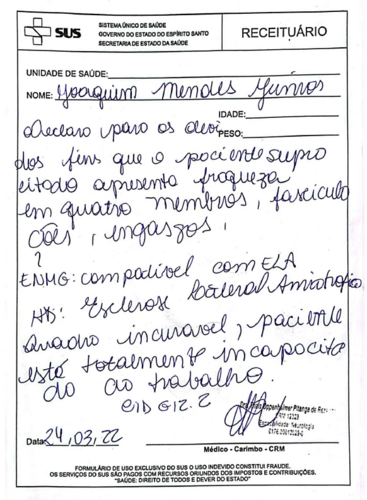 SUS
SISTEMA ÚNICO DE SAÚDE
GOVERNO DO ESTADO DO ESPÍRITO SANTO
SECRETARIA DE ESTADO DA SAÚDE
RECEITUÁRIO
UNIDADE DE SAÚDE:
NOME: Joaquim Mendes Junior
IDADE:
PESO:
Declaro para os devi
dos fins que o paciente supra
citado apresenta fraqueza
em quatro membros, fascicula
ções, engasgos,
?
ENMG: compatível com ELA
HD: Esclerose Lateral Amiotrófica
Quadro incurável, paciente
está totalmente incapacita
do ao trabalho.
CID G12.2
Neurologia
Data: 24,03,22
Médico - Carimbo - CRM
FORMULÁRIO DE USO EXCLUSIVO DO SUS O USO INDEVIDO CONSTITUI FRAUDE.
OS SERVIÇOS DO SUS SÃO PAGOS COM RECURSOS ORIUNDOS DOS IMPOSTOS E CONTRIBUIÇÕES.
"SAÚDE: DIREITO DE TODOS E DEVER DO ESTADO"